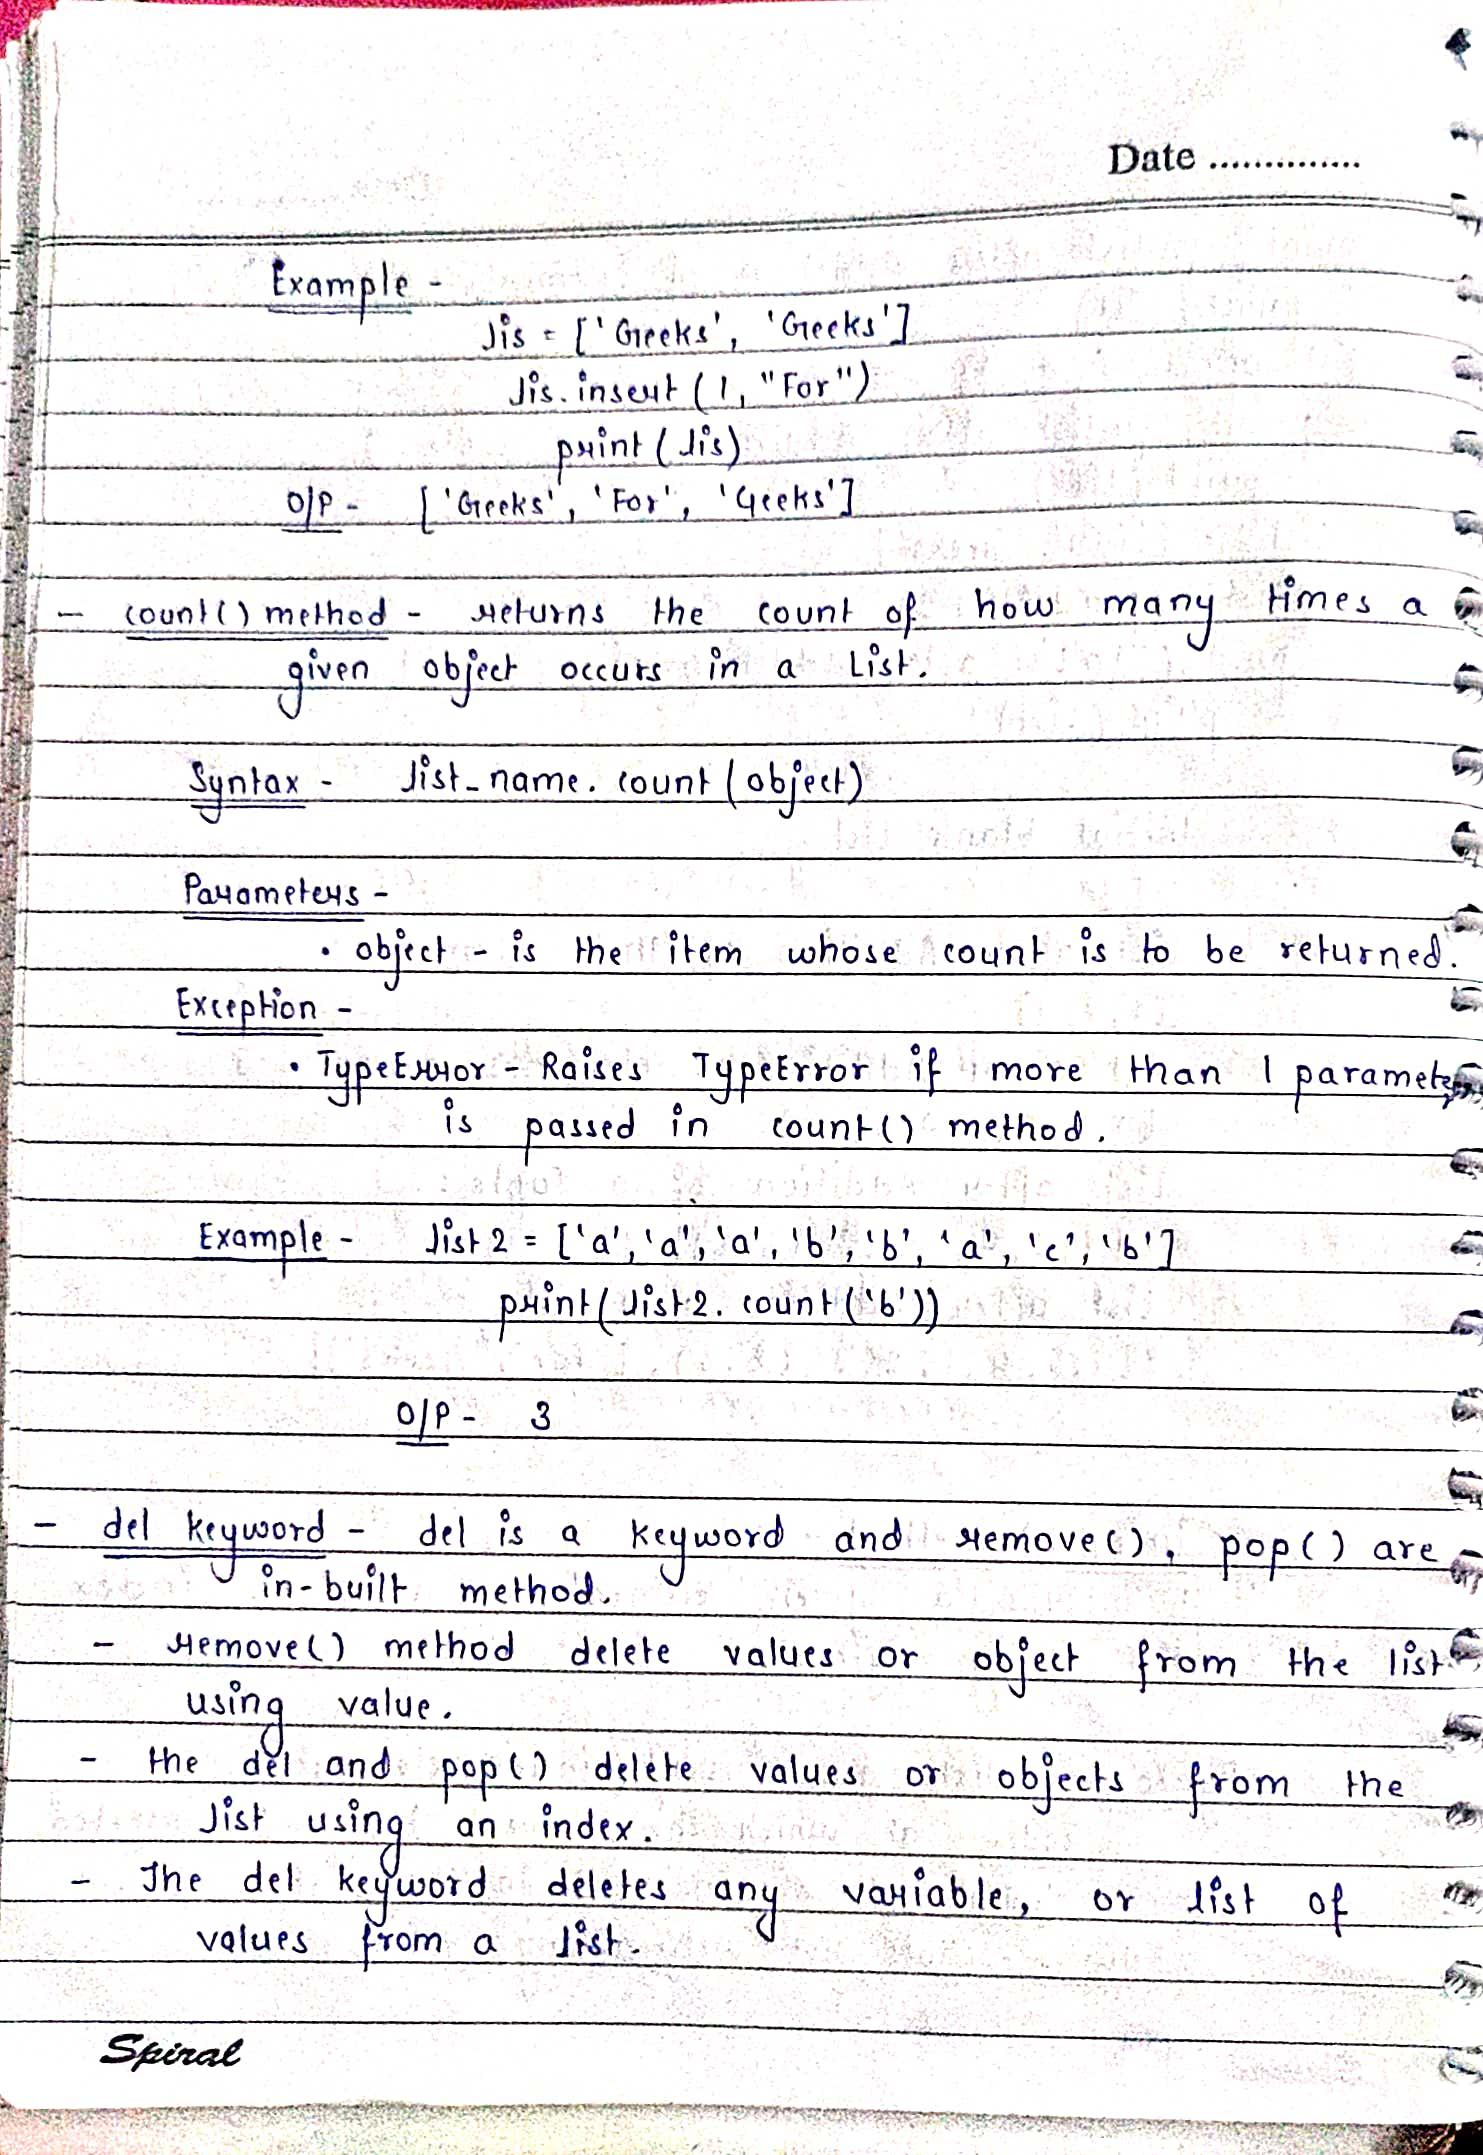 Date ..............
Example -
lis = ['Geeks', 'Geeks']
lis.insert (1, "For")
print (lis)
O/P - ['Geeks', 'For', 'Geeks']
- count() method - returns the count of how many times a
given object occurs in a List.
Syntax - list_name.count (object)
Parameters -
• object - is the item whose count is to be returned.
Exception -
• TypeError - Raises TypeError if more than 1 parameter
is passed in count() method.
Example - list2 = ['a', 'a', 'a', 'b', 'b', 'a', 'c', 'b']
print(list2.count('b'))
O/P - 3
- del keyword - del is a keyword and remove(), pop() are
in-built method.
- remove() method delete values or object from the list
using value.
- the del and pop() delete values or objects from the
list using an index.
- The del keyword deletes any variable, or list of
values from a list.
Spiral